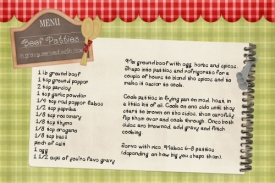 MENU
Beef Patties
1 lb ground beef
1 tsp ground pepper
2 tsp parsley
1 tsp garlic powder
1/2 tsp red pepper flakes
1/2 tsp paprika
1/8 tsp rosemary
1/8 tsp thyme
1/8 tsp oregano
1/8 tsp basil
pinch of salt
1 egg
1 1/2 cups of you're favor gravy
Mix ground beef with egg, herbs and spices.
Shape into patties and refrigerate for a
couple of hours to blend the spices and to
make it easier to cook.
Cook patties in frying pan on med. heat, in
a little bit of oil. Cook on one side until they
starts to brown on the sides, then carefully
flip them over and cook through. Once both
sides are browned, add gravy and finish
cooking.
Serve with rice. Makes 6-8 patties
(depending on how big you shape them).